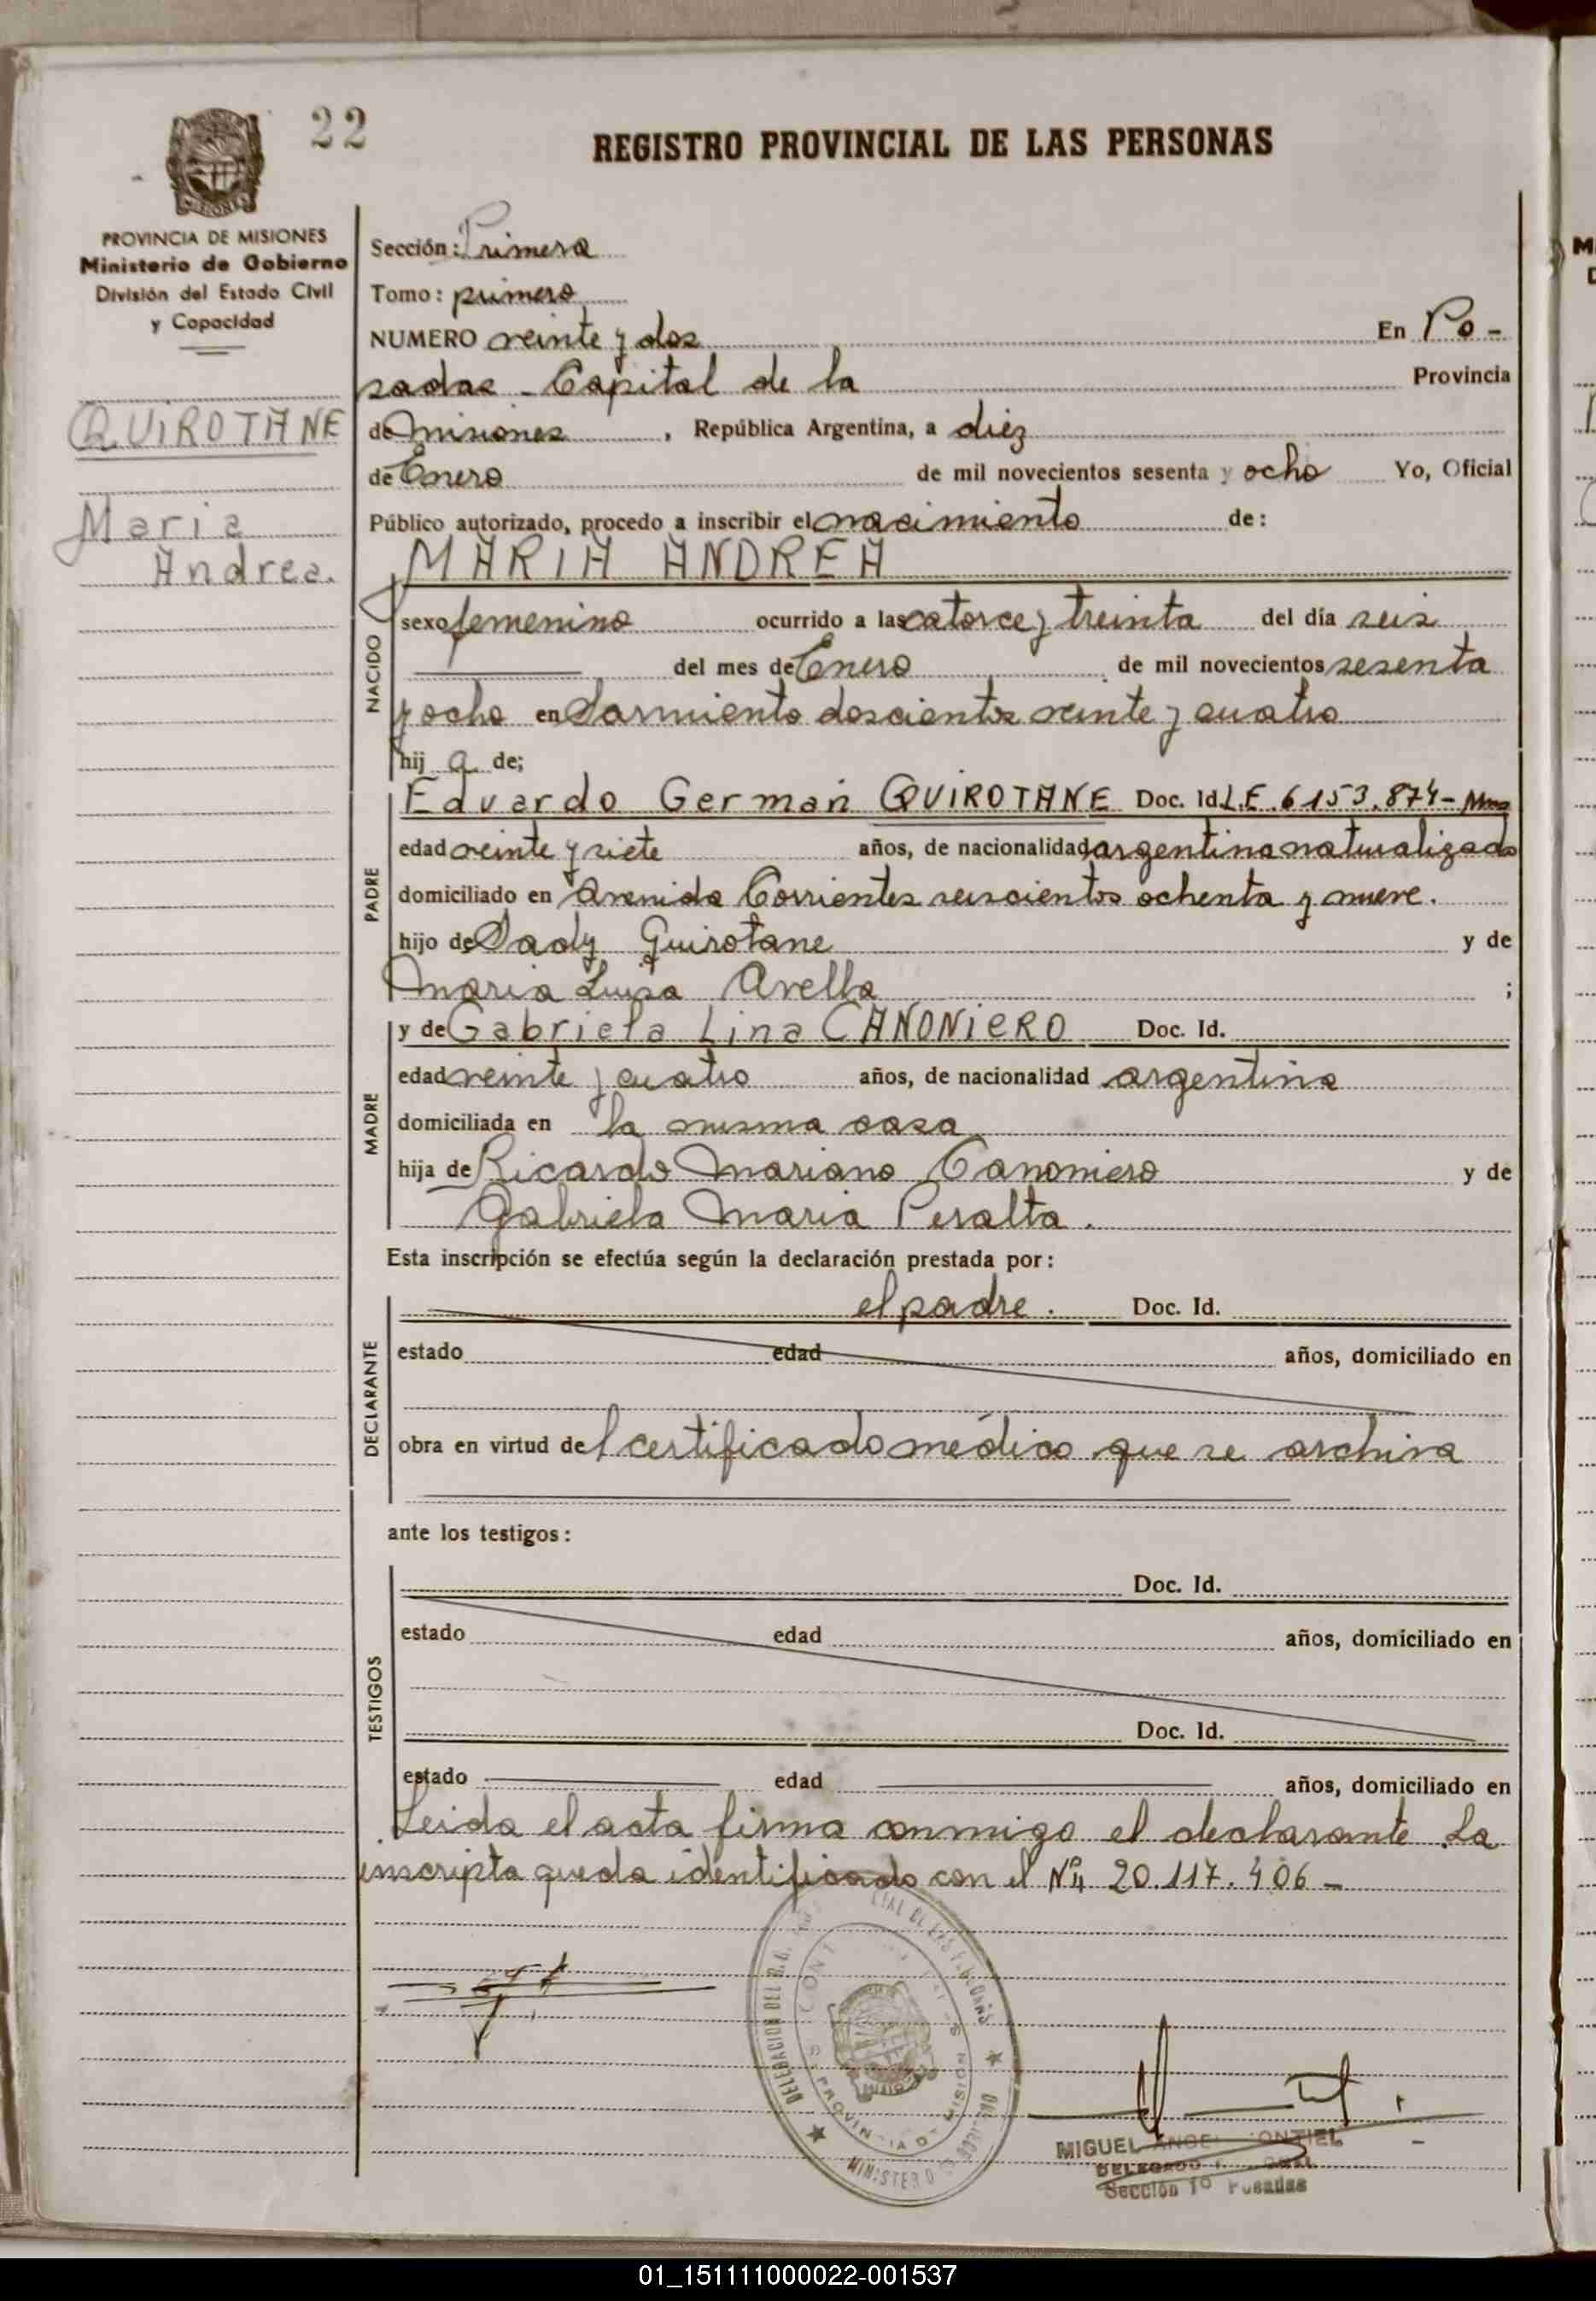 22
REGISTRO PROVINCIAL DE LAS PERSONAS
PROVINCIA DE MISIONES
Ministerio de Gobierno
División del Estado Civil
y Capacidad
QUIROTANE
Maria
Andrea.
Sección: Primera
Tomo: primero
NUMERO veinte y dos En Po-
sadas - Capital de la Provincia
de Misiones, República Argentina, a diez
de Enero de mil novecientos sesenta y ocho Yo, Oficial
Público autorizado, procedo a inscribir el nacimiento de:
MARIA ANDREA
NACIDO
sexo femenino ocurrido a las catorce y treinta del día seis
del mes de Enero de mil novecientos sesenta
y ocho en Sarmiento doscientos veinte y cuatro
hij a de;
PADRE
Eduardo German QUIROTANE Doc. Id. L.E. 6153.874-
edad veinte y siete años, de nacionalidad argentino naturalizado
domiciliado en Avenida Corrientes seiscientos ochenta y nueve.
hijo de Sady Quirotane y de
Maria Luisa Avella ;
MADRE
y de Gabriela Lina CANONiERO Doc. Id.
edad veinte y cuatro años, de nacionalidad argentina
domiciliada en la misma casa
hija de Ricardo Mariano Canoniero y de
Gabriela Maria Peralta.
Esta inscripción se efectúa según la declaración prestada por:
DECLARANTE
el padre. Doc. Id.
estado edad años, domiciliado en
obra en virtud del certificado médico que se archiva
ante los testigos:
TESTIGOS
Doc. Id.
estado edad años, domiciliado en
Doc. Id.
estado edad años, domiciliado en
Leida el acta firma conmigo el declarante. La
inscripta queda identificado con el Nº 20.117.406-
DELEGACION DEL
MINISTERIO DE GOBIERNO
PROVINCIA DE MISIONES
MIGUEL ANGEL
DELEGADO
Sección 1º Posadas
01_151111000022-001537